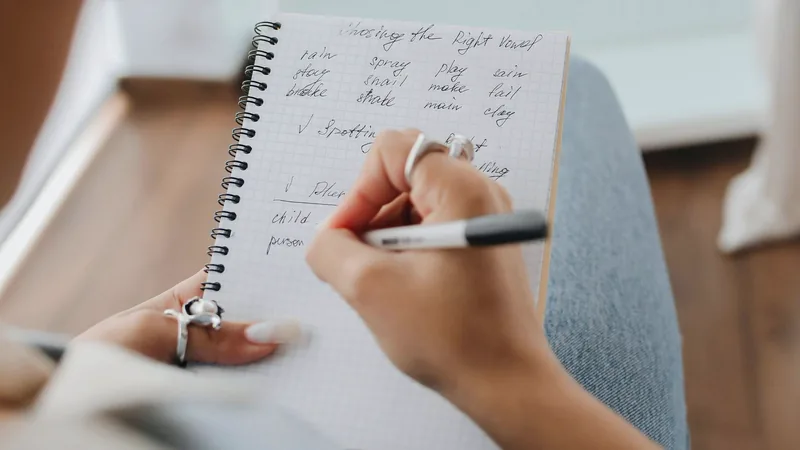 Chosing the Right Vowel
rain spray play sain
stay snail make fail
brake shake main clay
√ Spotting
√
child
person